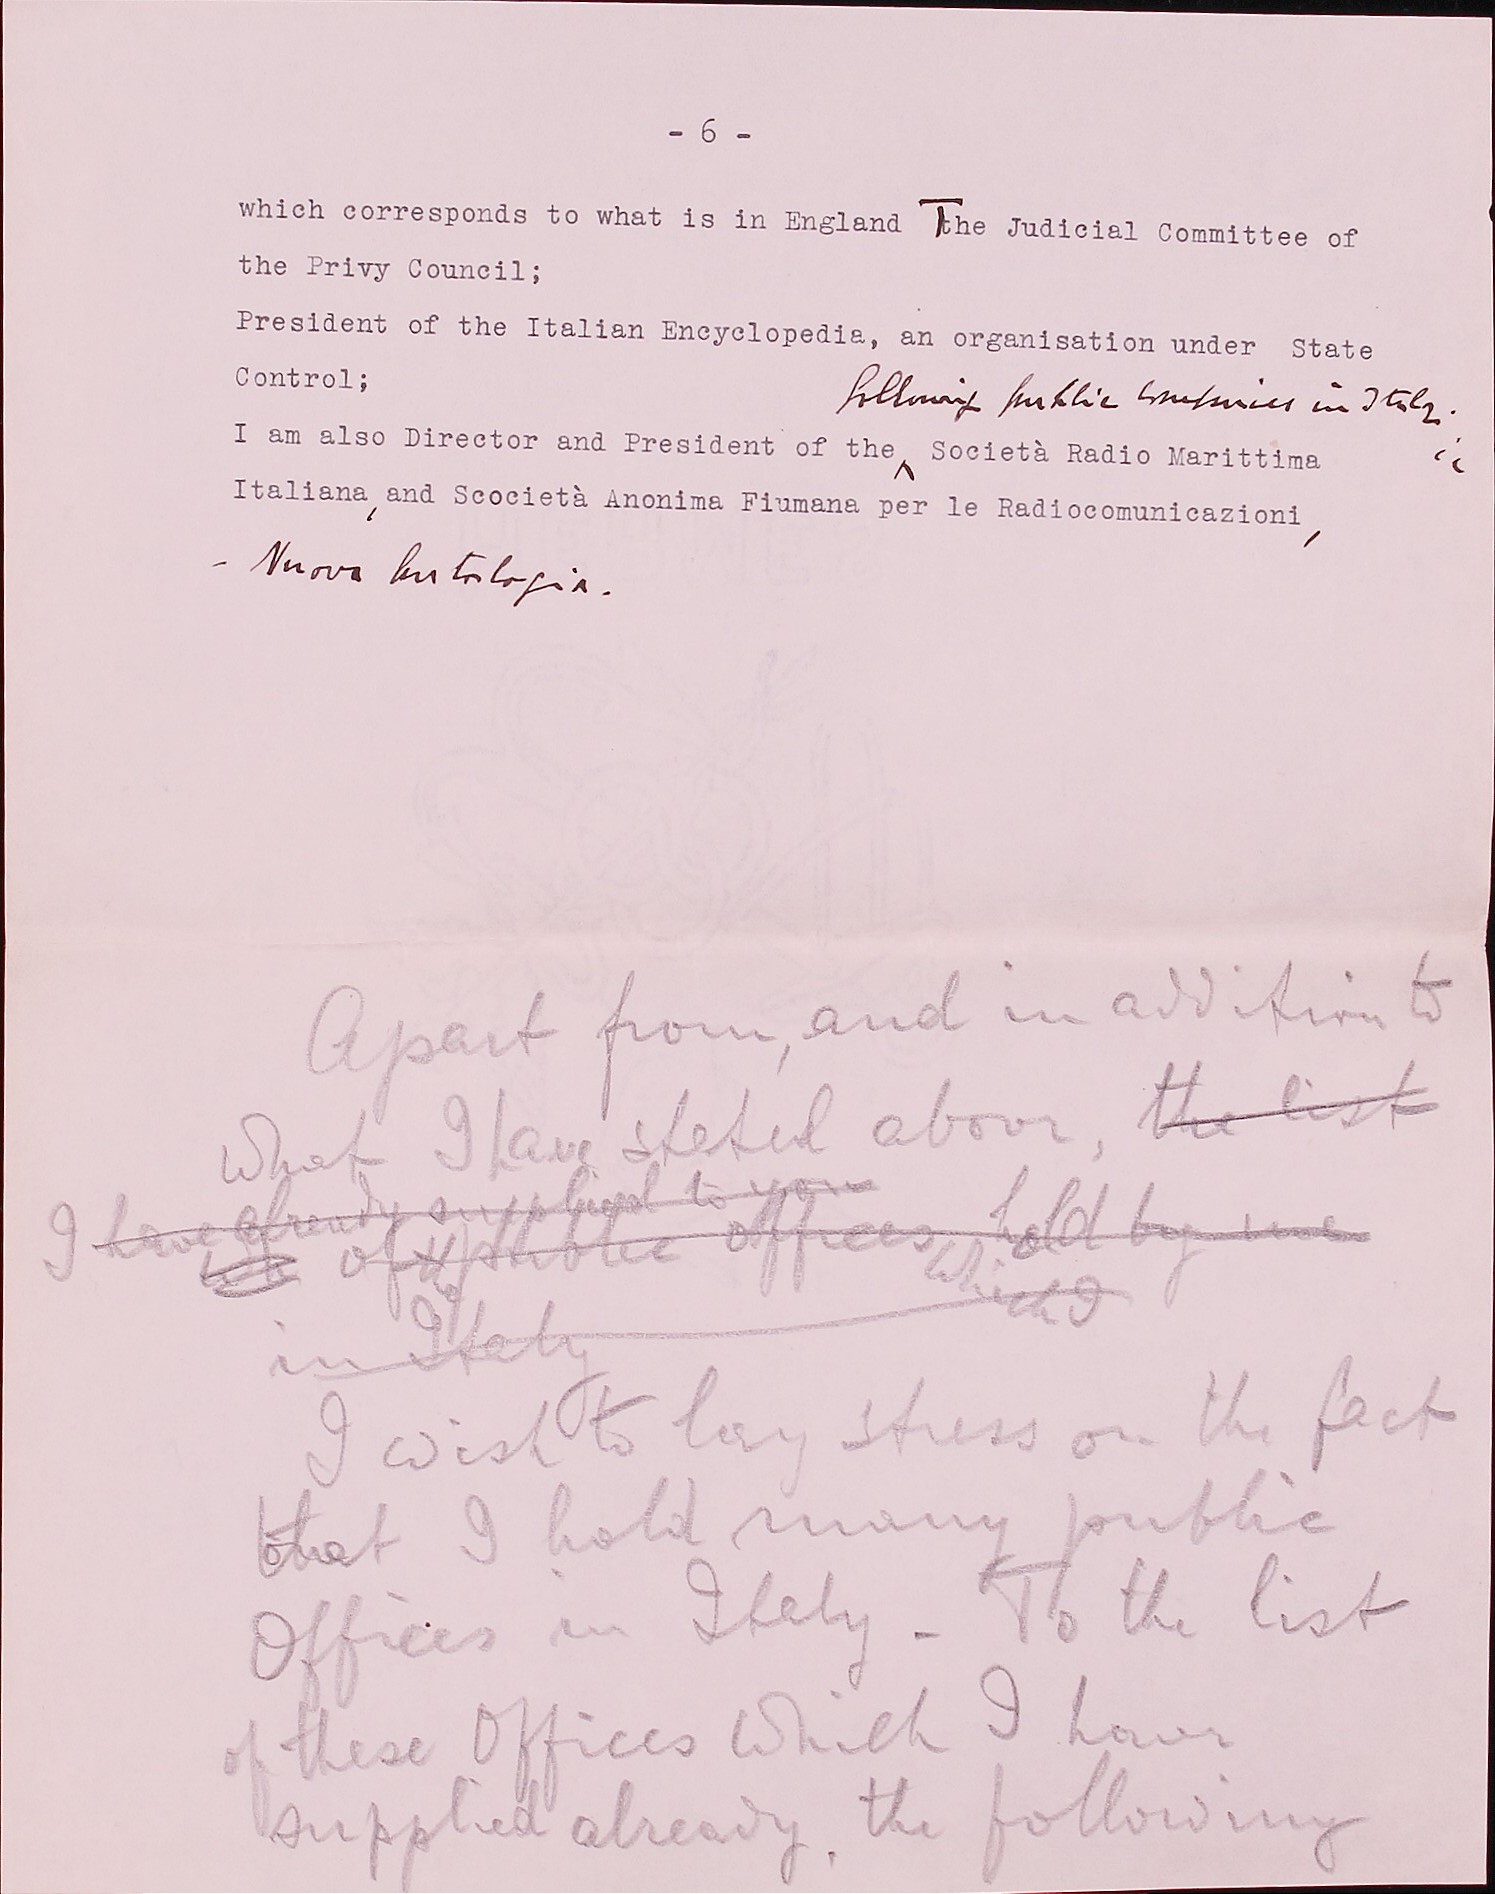 - 6 -
which corresponds to what is in England The Judicial Committee of
the Privy Council;
President of the Italian Encyclopedia, an organisation under State
Control;
following public companies in Italy.
I am also Director and President of the Società Radio Marittima
Italiana, and Scocietà Anonima Fiumana per le Radiocomunicazioni,
- Nuova Antologia.
Apart from, and in addition to
what I have stated above, the list
I have already supplied to you
of the public offices held by me
which I
in Italy
I wish to lay stress on the fact
that I hold many public
Offices in Italy - To the list
of these Offices which I have
supplied already, the following